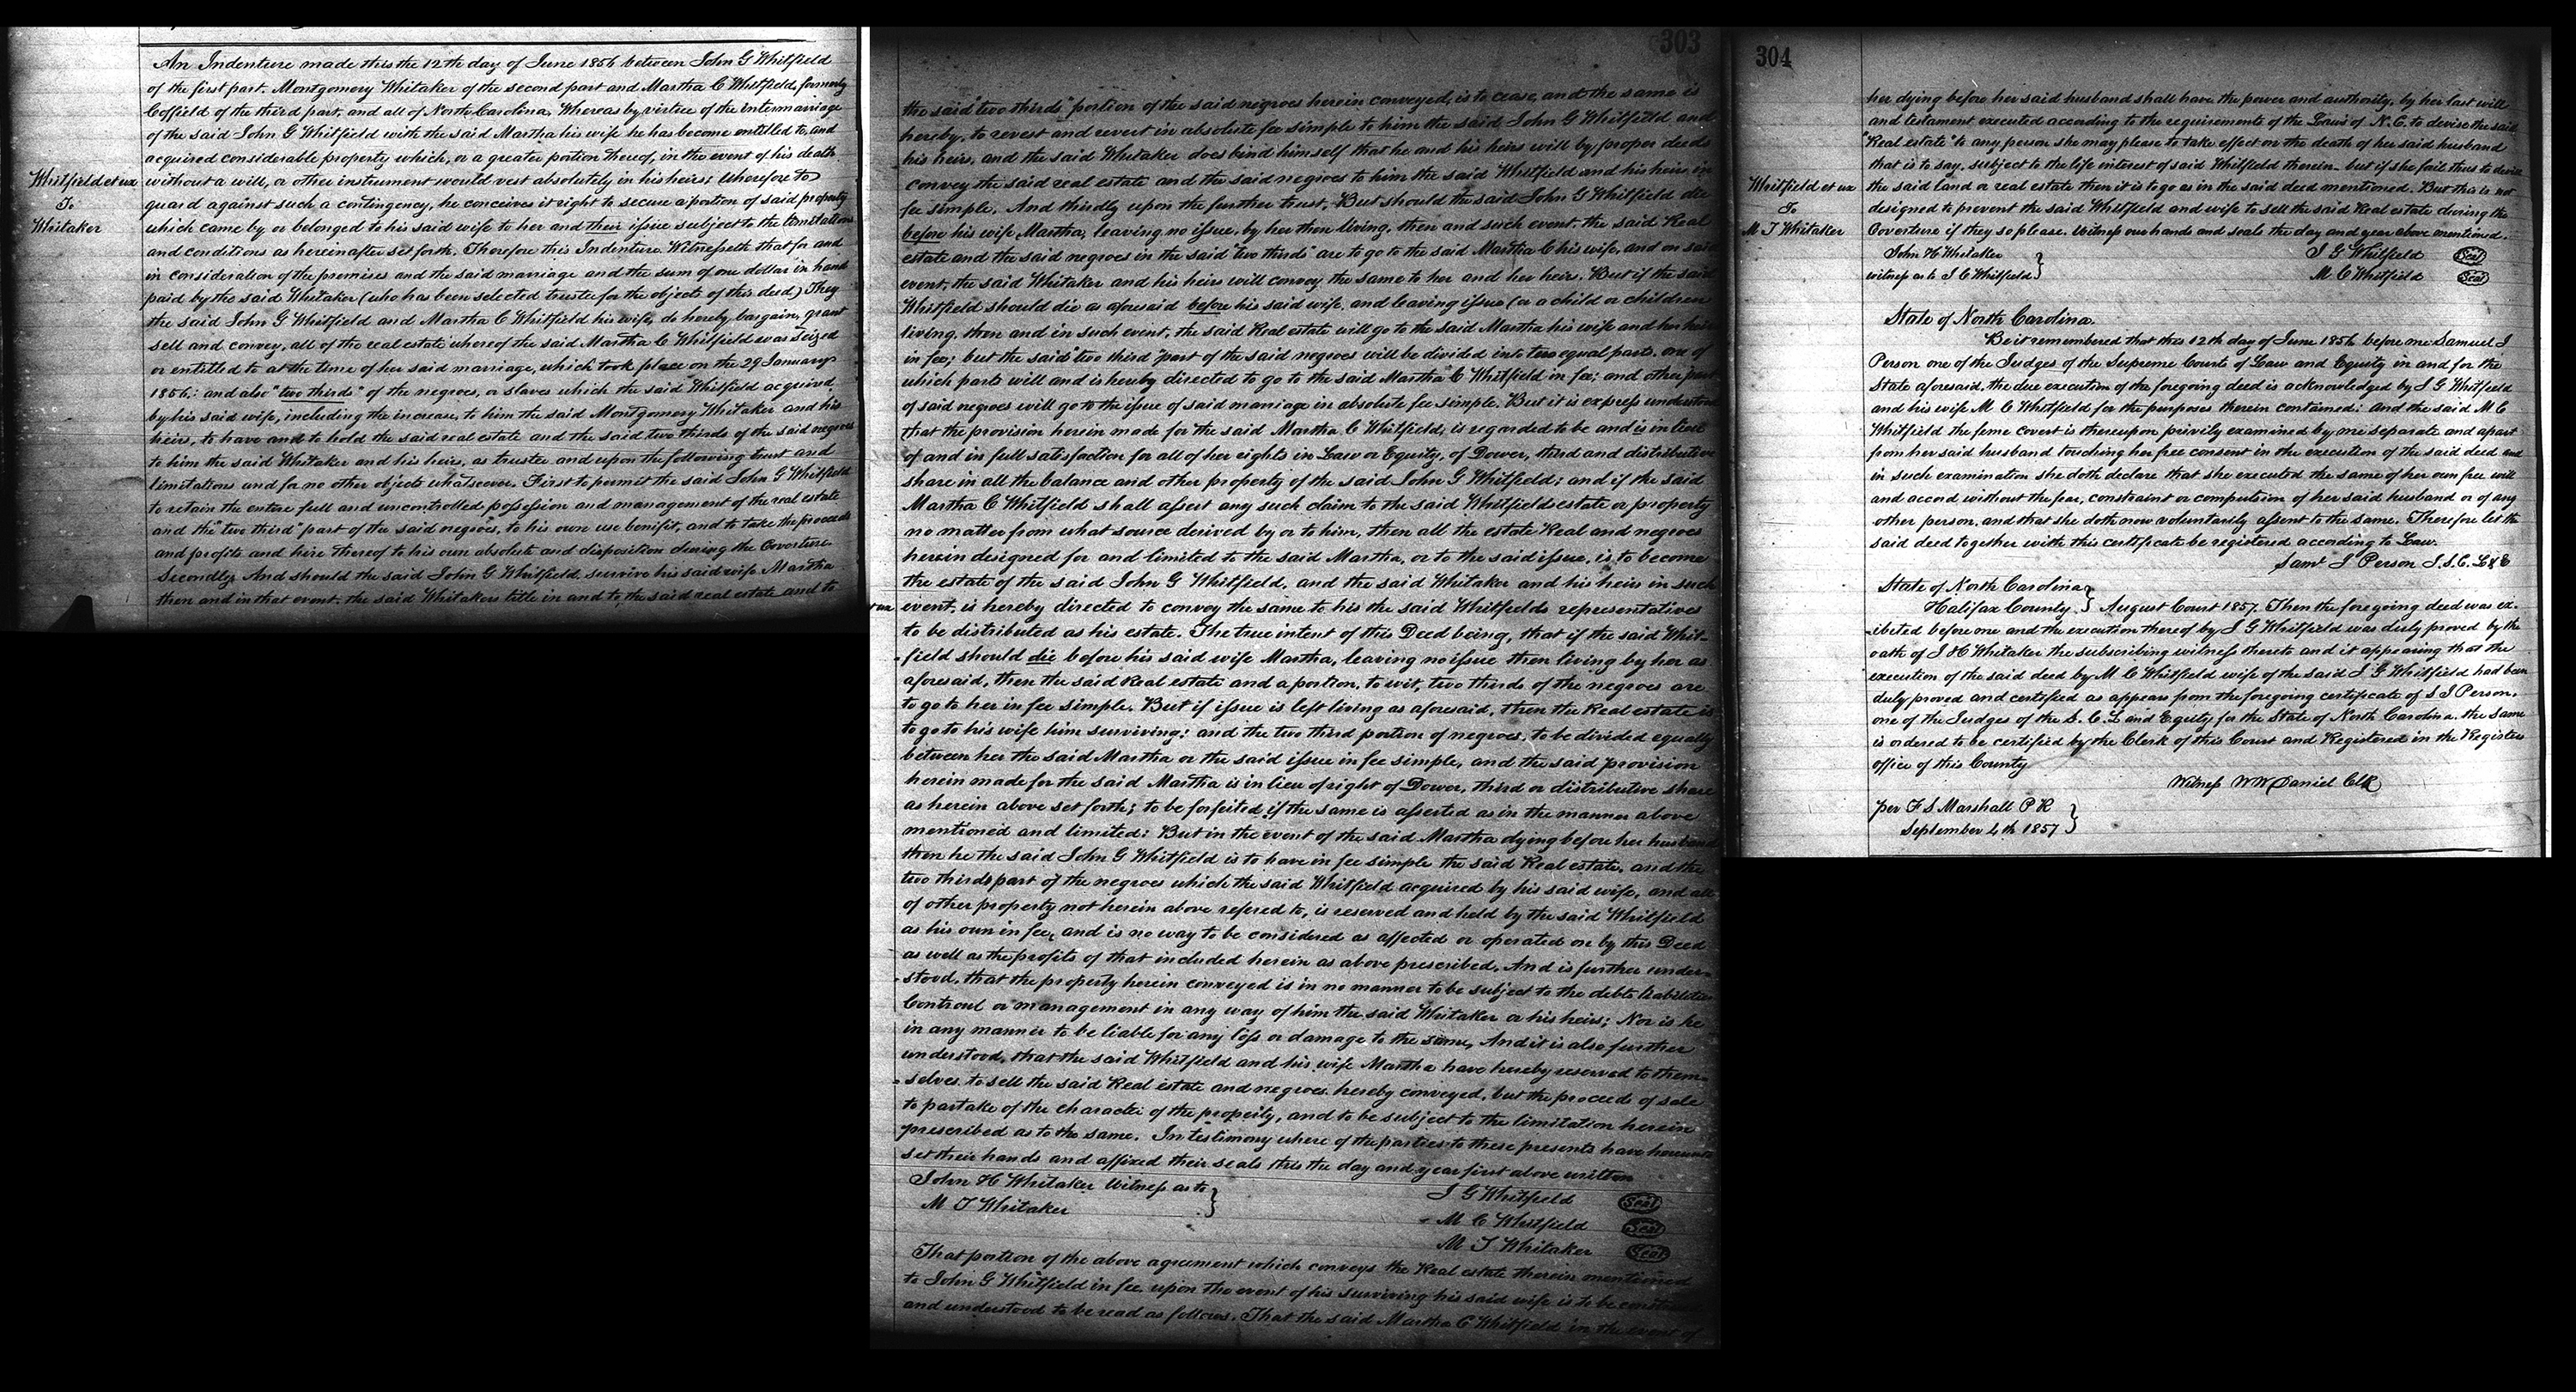 An Indenture made this the 12th day of June 1856 between John G Whitfield
of the first part, Montgomery Whitaker of the second part and Martha C Whitfield, formerly
Coffield of the third part, and all of North Carolina, Whereas by virtue of the intermarriage
of the said John G Whitfield with the said Martha his wife he has become entitled to, and
acquired considerable property which, or a greater portion thereof, in the event of his death
Whitfield et ux
To
Whitaker
without a will, or other instrument would vest absolutely in his heirs; Wherefore to
guard against such a contingency, he conceives it right to secure a portion of said property
which came by or belonged to his said wife to her and their issue subject to the limitations
and conditions as hereinafter set forth. Therefore this Indenture Witnesseth that for and
in consideration of the premises and the said marriage and the sum of one dollar in hand
paid by the said Whitaker (who has been selected trustee for the objects of this deed) They
the said John G Whitfield and Martha C Whitfield his wife, do hereby bargain, grant
sell and convey, all of the real estate whereof the said Martha C Whitfield was seized
or entitled to at the time of her said marriage, which took place on the 29 January
1856: and also "two thirds" of the negroes, or slaves which the said Whitfield acquired
by his said wife, including the increase, to him the said Montgomery Whitaker and his
heirs, to have and to hold the said real estate and the said two thirds of the said negroes
to him the said Whitaker and his heirs, as trustee and upon the following trust and
limitations and for no other objects whatsoever. First to permit the said John G Whitfield
to retain the entire full and uncontrolled possession and management of the real estate
and the "two third" part of the said negroes, to his own use bonifit, and to take the proceeds
and profits and hire thereof to his own absolute and disposition during the Coverture
Secondly And should the said John G Whitfield survive his said wife Martha
then and in that event, the said Whitakers title in and to, the said real estate and to
303
the said "two thirds" portion of the said negroes herein conveyed, is to cease, and the same is
hereby, to revest and revert in absolute fee simple to him the said John G Whitfield and
his heirs, and the said Whitaker does bind himself that he and his heirs will by proper deeds
convey the said real estate and the said negroes to him the said Whitfield and his heirs in
fee simple. And thirdly upon the further trust. But should the said John G Whitfield die
before his wife Martha, leaving no issue, by her then living, then and such event, the said Real
estate and the said negroes in the said "two thirds" are to go to the said Martha C his wife, and on said
event, the said Whitaker and his heirs will convey the same to her and her heirs. But if the said
Whitfield should die as aforesaid before his said wife, and leaving issue (or a child or children
living, then and in such event, the said Real estate will go to the said Martha his wife and her heirs
in fee; but the said "two third" part of the said negroes will be divided into two equal parts, one of
which parts will and is hereby directed to go to the said Martha C Whitfield in fee; and other part
of said negroes will go to the issue of said marriage in absolute fee simple. But it is express understood
that the provision herein made for the said Martha C Whitfield, is regarded to be and is in lieu
of and in full satisfaction for all of her rights in Law or Equity, of Dower, third and distributive
share in all the balance and other property of the said John G Whitfield; and if the said
Martha C Whitfield shall assert any such claim to the said Whitfields estate or property
no matter from what source derived by or to him, then all the estate Real and negroes
herein designed for and limited to the said Martha, or to the said issue, is to become
the estate of the said John G Whitfield, and the said Whitaker and his heirs in such
event, is hereby directed to convey the same to his the said Whitfields representatives
to be distributed as his estate. The true intent of this Deed being, that if the said Whit-
-field should die before his said wife Martha, leaving no issue then living by her as
aforesaid, then the said Real estate and a portion, to wit, two thirds of the negroes are
to go to her in fee simple. But if issue is left living as aforesaid, then the Real estate is
to go to his wife him surviving: and the two third portion of negroes, to be divided equally
between her the said Martha or the said issue in fee simple, and the said provision
herein made for the said Martha is in lieu of right of Dower, third or distributive share
as herein above set forth; to be forfeited if the same is asserted as in the manner above
mentioned and limited: But in the event of the said Martha dying before her husband
then he the said John G Whitfield is to have in fee simple the said Real estate, and the
two thirds part of the negroes which the said Whitfield acquired by his said wife, and all
of other property not herein above refered to, is reserved and held by the said Whitfield
as his own in fee, and is no way to be considered as affected or operated on by this Deed
as well as the profits of that included herein as above prescribed. And is further under-
-stood, that the property herein conveyed is in no manner to be subject to the debts liabilities
Controul or management in any way of him the said Whitaker or his heirs; Nor is he
in any manner to be liable for any loss or damage to the same, And it is also further
understood, that the said Whitfield and his wife Martha have hereby reserved to them-
-selves to sell the said Real estate and negroes hereby conveyed, but the proceeds of sale
to partake of the character of the property, and to be subject to the limitation herein
prescribed as to the same. In testimony where of the parties to these presents have hereunto
set their hands and affixed their seals this the day and year first above written
John H Whitaker Witness as to }
M T Whitaker
J G Whitfield Seal
M C Whitfield Seal
M T Whitaker Seal
That portion of the above agreement which conveys the Real estate therein mentioned
to John G Whitfield in fee, upon the event of his surviving his said wife is to be construed
and understood to be read as follows. That the said Martha C Whitfield in the event of
304
her dying before her said husband shall have the power and authority, by her last will
and testament executed according to the requirements of the Laws of N.C. to devise the said
"Real estate" to any person she may please to take effect on the death of her said husband
that is to say, subject to the life interest of said Whitfield therein. but if she fail thus to devise
Whitfield et ux
To
M T Whitaker
the said land or real estate then it is to go as in the said deed mentioned. But this is not
designed to prevent the said Whitfield and wife to sell the said Real estate during the
Coverture if they so please. Witness our hands and seals the day and year above mentioned.
John H Whitaker
witness as to J C Whitfield }
J G Whitfield Seal
M C Whitfield Seal
State of North Carolina.
Be it remembered that this 12th day of June 1856 before me Samuel J
Person one of the Judges of the Supreme Courts of Law and Equity in and for the
State aforesaid, the due execution of the foregoing deed is acknowledged by J G Whitfield
and his wife M C Whitfield for the purposes therein contained: and the said M C
Whitfield the feme covert is thereupon privily examined by me separate and apart
from her said husband touching her free consent in the execution of the said deed and
in such examination she doth declare that she executed the same of her own free will
and accord without the fear, constraint or compulsion of her said husband or of any
other person, and that she doth now voluntarily assent to the same. Therefore let the
said deed together with this certificate be registered according to Law.
Saml J Person J.S.C. L&E
State of North Carolina }
Halifax County } August Court 1857. Then the foregoing deed was ex-
-ibited before one and the execution thereof by J G Whitfield was duly proved by the
oath of J H Whitaker the subscribing witness thereto and it appearing that the
execution of the said deed by M C Whitfield wife of the said J G Whitfield had been
duly proved and certified as appears from the foregoing certificate of S J Person,
one of the Judges of the S. C. L and Equity for the State of North Carolina, the same
is ordered to be certified by the Clerk of this Court and Registered in the Registers
office of this County
Witness W W Daniel Clk
per F S Marshall P R }
September 4th 1857